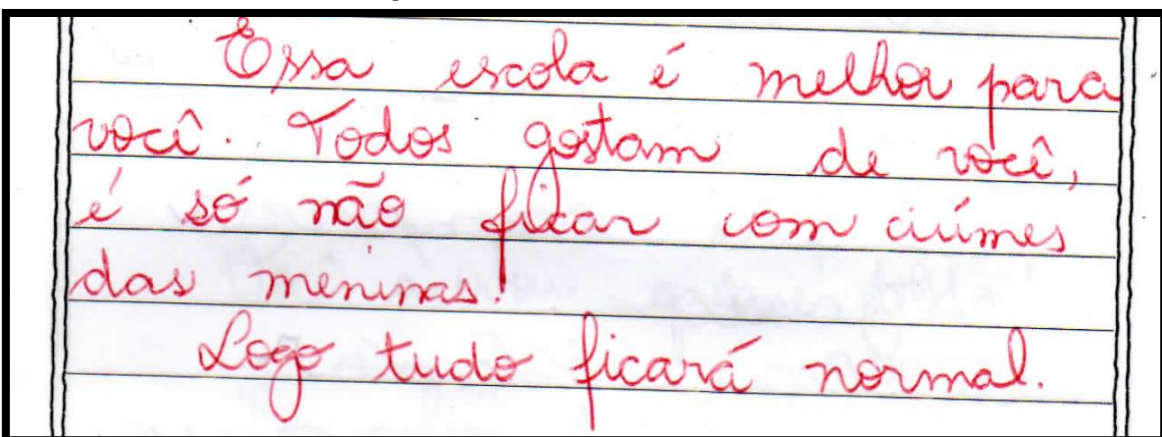 Essa escola é melhor para
você. Todos gostam de você,
é só não ficar com ciúmes
das meninas!
Logo tudo ficará normal.